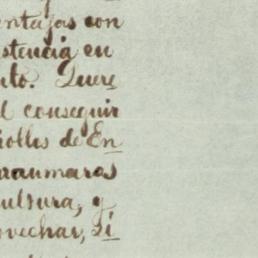 entajas con
stencia en
nto. Quere
l conseguir
iolles de En
araumaras
ultura, y
ovechar, Si